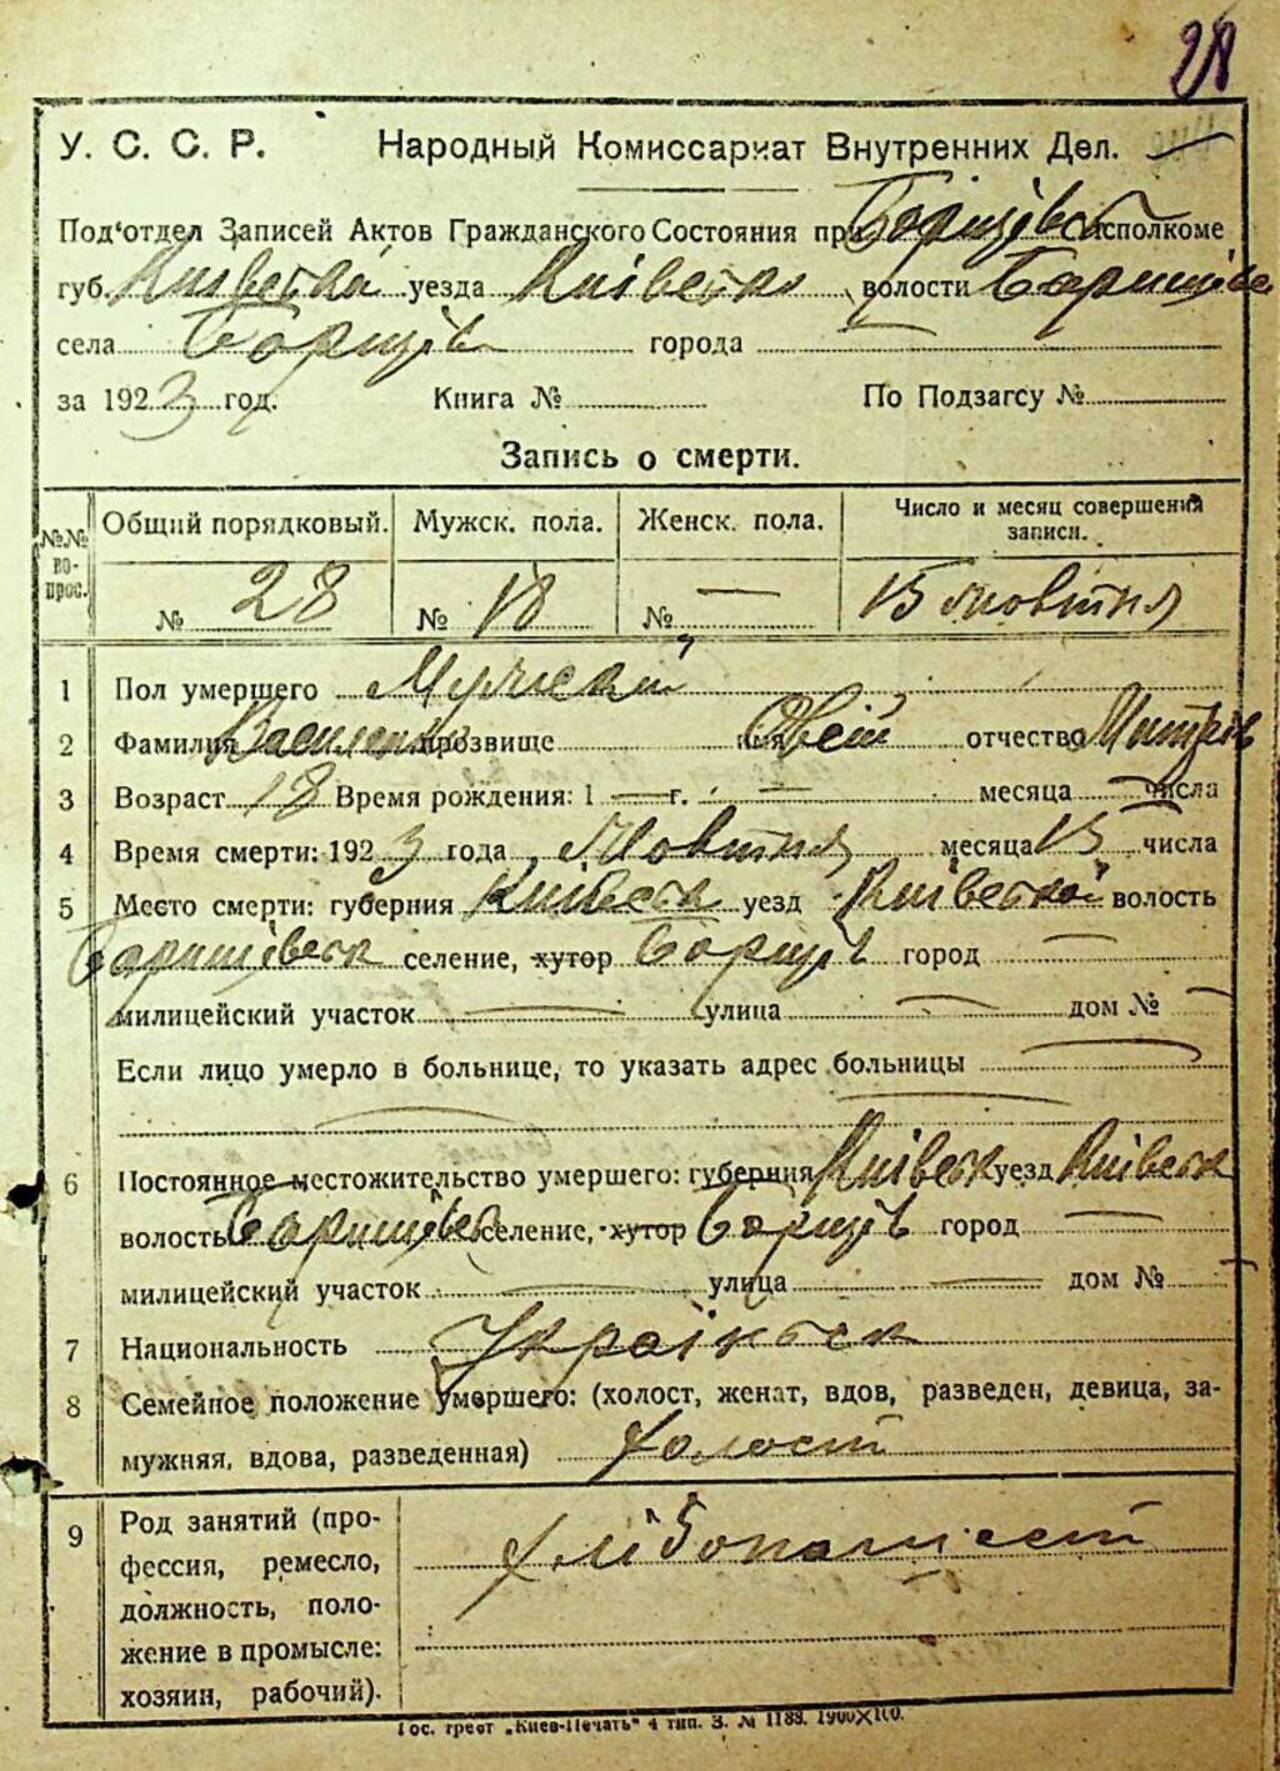 28
У. С. С. Р. Народный Комиссариат Внутренних Дел.
Под‘отдел Записей Актов Гражданского Состояния при Борщівск Исполкоме
губ. Киівської уезда Киівсько волости Баришівск
села Борщів города —
за 1923 год. Книга № По Подзагсу №
Запись о смерти.
№№ вопрос. Общий порядковый. Мужск. пола. Женск. пола. Число и месяц совершения записи.
№ 28 № 18 № — 15 жовтня
1 Пол умершего Мужский
2 Фамилия Василенко прозвище имя отчество Митрів
3 Возраст 18 Время рождения: 1 — г. — месяца — числа
4 Время смерти: 1923 года Жовтня месяца 15 числа
5 Место смерти: губерния Киівск уезд Киівської волость
Баришівськ селение, хутор Борщів город —
милицейский участок — улица — дом № —
Если лицо умерло в больнице, то указать адрес больницы —
— —
6 Постоянное местожительство умершего: губерния Киівськ уезд Киівськ
волость Баришівск селение, хутор Борщів город —
милицейский участок — улица — дом № —
7 Национальность Украінськ
8 Семейное положение умершего: (холост, женат, вдов, разведен, девица, за-
мужняя, вдова, разведенная) холост
9 Род занятий (про-
фессия, ремесло,
должность, поло-
жение в промысле:
хозяин, рабочий).
Гос. трест „Киев-Печать“ 4 тип. З. № 1188. 1900Х100.